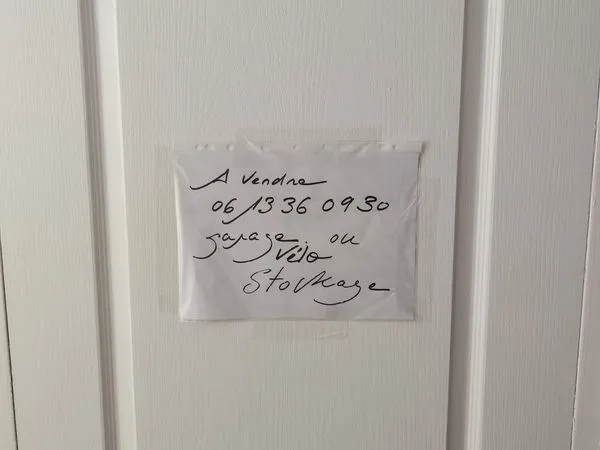 A vendre
06 13 36 09 30
garage ou
vélo
Stockage